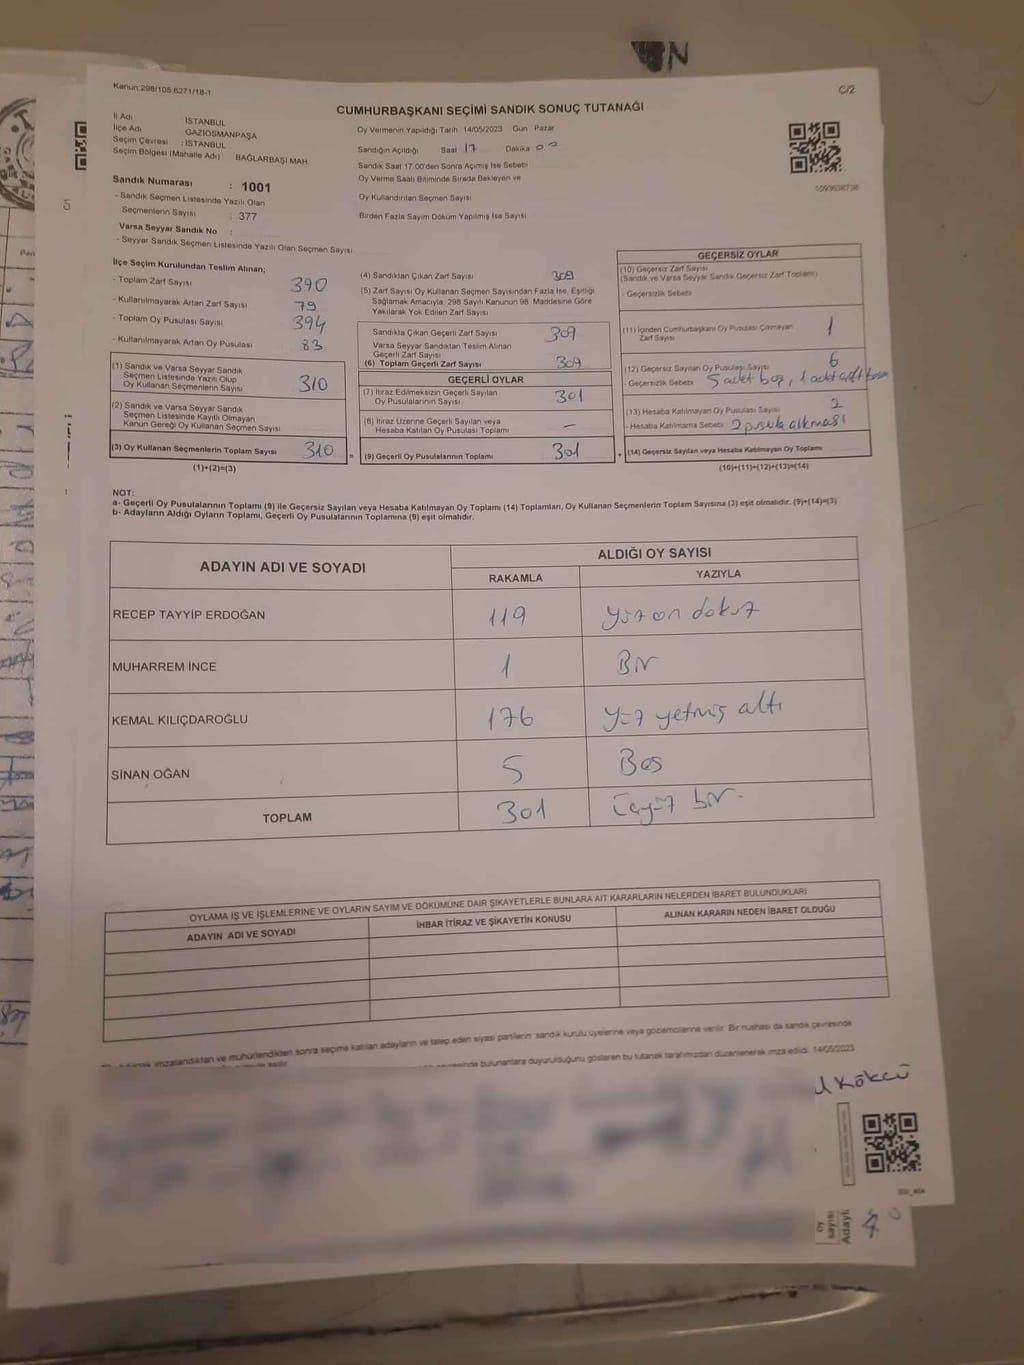 Kanun:298/105;6271/18-1
C/2
CUMHURBAŞKANI SEÇİMİ SANDIK SONUÇ TUTANAĞI
İl Adı İSTANBUL
İlçe Adı GAZİOSMANPAŞA
Seçim Çevresi : İSTANBUL
Seçim Bölgesi (Mahalle Adı) BAĞLARBAŞI MAH.
Oy Vermenin Yapıldığı Tarih 14/05/2023 Gün Pazar
Sandığın Açıldığı Saat 17 Dakika 00
Sandık Saat 17.00'den Sonra Açımış İse Sebebi
Oy Verme Saati Bitiminde Sırada Bekleyen ve
Oy Kullandırılan Seçmen Sayısı
Birden Fazla Sayım Döküm Yapılmış İse Sayısı
Sandık Numarası : 1001
- Sandık Seçmen Listesinde Yazılı Olan
Seçmenlerin Sayısı : 377
Varsa Seyyar Sandık No :
- Seyyar Sandık Seçmen Listesinde Yazılı Olan Seçmen Sayısı
İlçe Seçim Kurulundan Teslim Alınan;
- Toplam Zarf Sayısı 390
- Kullanılmayarak Artan Zarf Sayısı 79
- Toplam Oy Pusulası Sayısı 394
- Kullanılmayarak Artan Oy Pusulası 83
(1) Sandık ve Varsa Seyyar Sandık
Seçmen Listesinde Yazılı Olup
Oy Kullanan Seçmenlerin Sayısı 310
(2) Sandık ve Varsa Seyyar Sandık
Seçmen Listesinde Kayıtlı Olmayan
Kanun Gereği Oy Kullanan Seçmen Sayısı
(3) Oy Kullanan Seçmenlerin Toplam Sayısı 310
(1)+(2)=(3)
(4) Sandıktan Çıkan Zarf Sayısı 309
(5) Zarf Sayısı Oy Kullanan Seçmen Sayısından Fazla İse, Eşitliği
Sağlamak Amacıyla, 298 Sayılı Kanunun 98. Maddesine Göre
Yakılarak Yok Edilen Zarf Sayısı
Sandıkta Çıkan Geçerli Zarf Sayısı 309
Varsa Seyyar Sandıktan Teslim Alınan
Geçerli Zarf Sayısı
(6) Toplam Geçerli Zarf Sayısı 309
GEÇERLİ OYLAR
(7) İtiraz Edilmeksizin Geçerli Sayılan
Oy Pusulalarının Sayısı 301
(8) İtiraz Üzerine Geçerli Sayılan veya
Hesaba Katılan Oy Pusulası Toplamı –
(9) Geçerli Oy Pusulalarının Toplamı 301
GEÇERSİZ OYLAR
(10) Geçersiz Zarf Sayısı
(Sandık ve Varsa Seyyar Sandık Geçersiz Zarf Toplamı)
- Geçersizlik Sebebi
(11) İçinden Cumhurbaşkanı Oy Pusulası Çıkmayan
Zarf Sayısı 1
(12) Geçersiz Sayılan Oy Pusulası Sayısı 6
- Geçersizlik Sebebi 5 adet boş, 1 adet çift
(13) Hesaba Katılmayan Oy Pusulası Sayısı 2
- Hesaba Katılmama Sebebi 2 pusula çıkması
(14) Geçersiz Sayılan veya Hesaba Katılmayan Oy Toplamı
(10)+(11)+(12)+(13)=(14)
NOT:
a- Geçerli Oy Pusulalarının Toplamı (9) ile Geçersiz Sayılan veya Hesaba Katılmayan Oy Toplamı (14) Toplamları, Oy Kullanan Seçmenlerin Toplam Sayısına (3) eşit olmalıdır. (9)+(14)=(3)
b- Adayların Aldığı Oyların Toplamı, Geçerli Oy Pusulalarının Toplamına (9) eşit olmalıdır.
ADAYIN ADI VE SOYADI
ALDIĞI OY SAYISI
RAKAMLA YAZIYLA
RECEP TAYYİP ERDOĞAN 119 yüz on dokuz
MUHARREM İNCE 1 Bir
KEMAL KILIÇDAROĞLU 176 yüz yetmiş altı
SİNAN OĞAN 5 Beş
TOPLAM 301 üçyüz bir.
OYLAMA İŞ VE İŞLEMLERİNE VE OYLARIN SAYIM VE DÖKÜMÜNE DAİR ŞİKAYETLERLE BUNLARA AİT KARARLARIN NELERDEN İBARET BULUNDUKLARI
ADAYIN ADI VE SOYADI
İHBAR İTİRAZ VE ŞİKAYETİN KONUSU
ALINAN KARARIN NEDEN İBARET OLDUĞU
imzalandıktan ve mühürlendikten sonra seçime katılan adayların ve talep eden siyasi partilerin sandık kurulu üyelerine veya gözlemcilerine verilir. Bir nüshası da sandık çevresinde
bulunanlara duyurulduğunu gösteren bu tutanak tarafımızdan düzenlenerek imza edildi. 14/05/2023
Kökcü
oy
sayısı
Adaylı